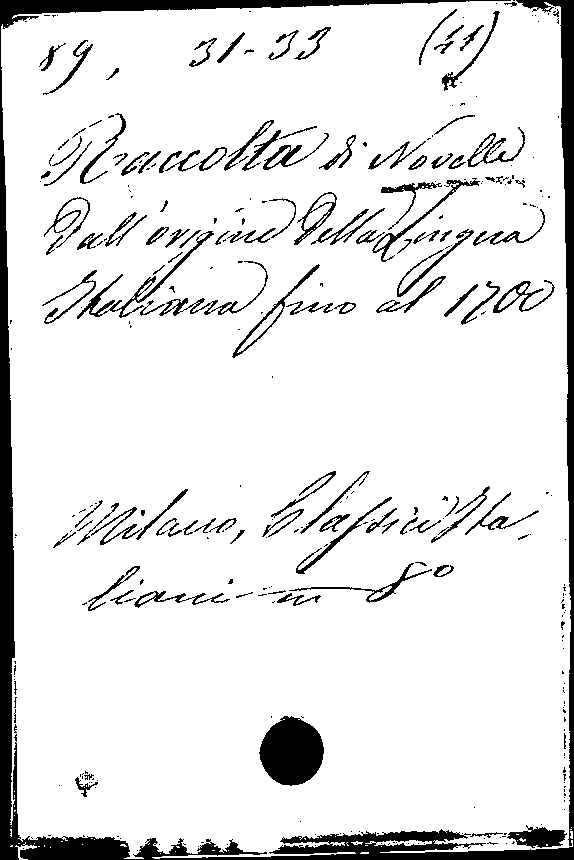 89, 31-33 (41)
Raccolta di Novelle
Dall'origine della Lingua
Italiana fino al 1700
Milano, Classici Ita-
liani in 8º